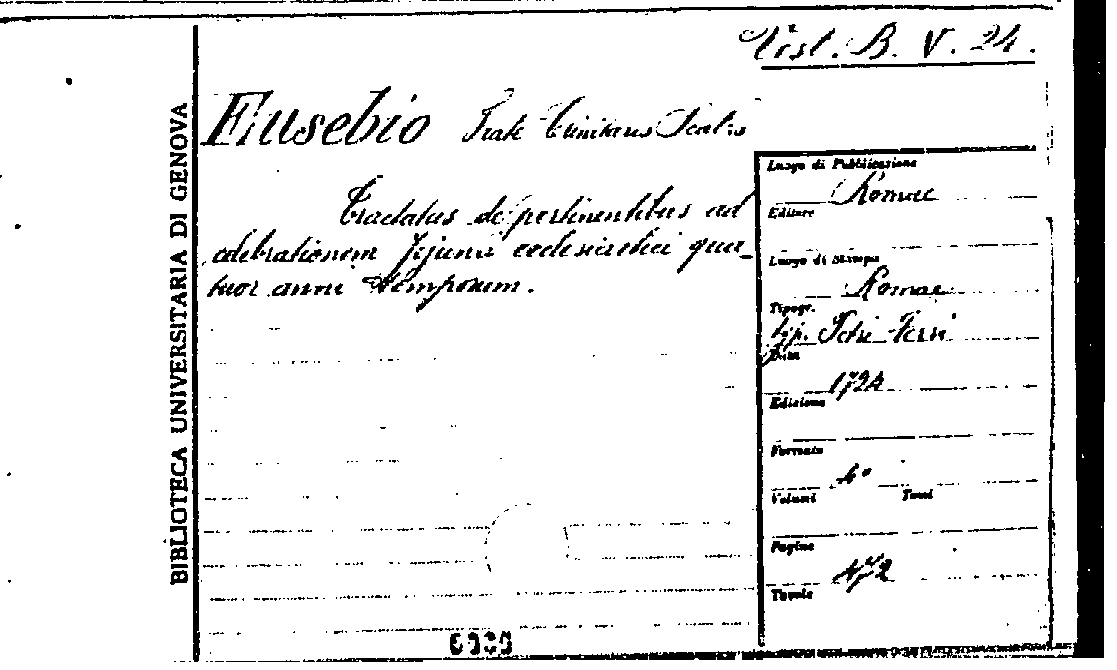 Vist. B. V. 24.
BIBLIOTECA UNIVERSITARIA DI GENOVA
Eusebio Frate
Tractatus de pertinentibus ad
celebrationem Jejunii ecclesiastici qua-
tuor anni temporum.
Luogo di Pubblicazione
Romae
Editore
Luogo di Stampa
Romae
Tipogr.
tip. Petri Ferri
Data
1724
Edizione
Formato
4°
Volumi Tomi
Pagine
472
Tavole